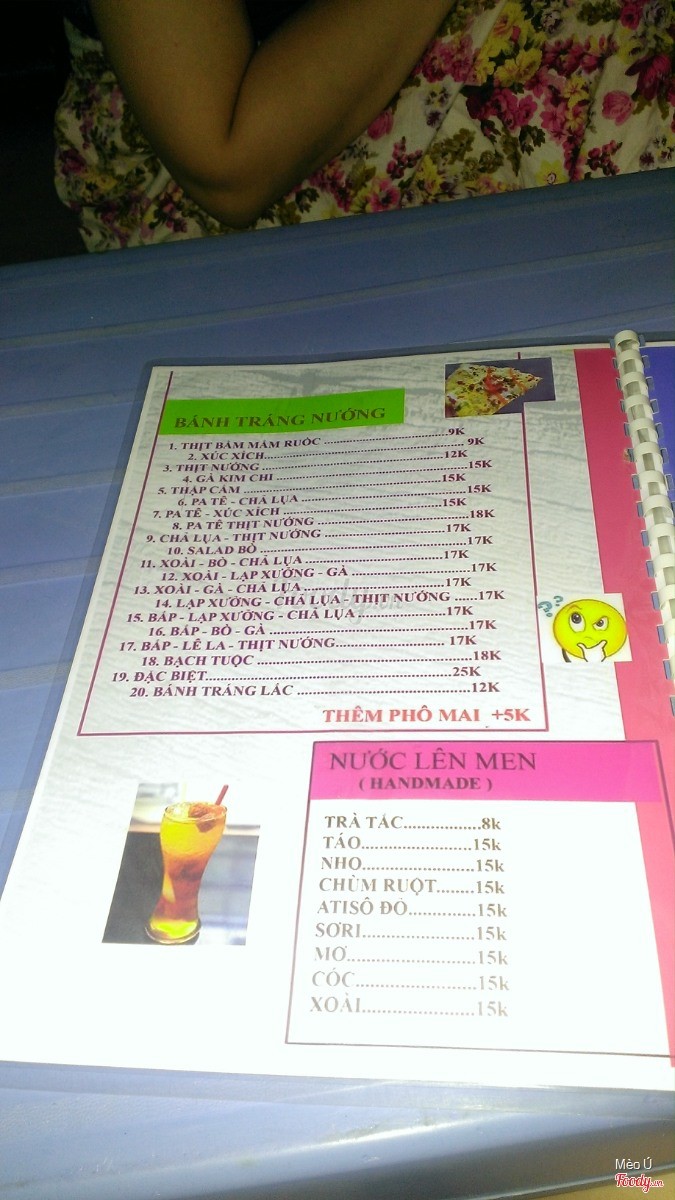 BÁNH TRÁNG NƯỚNG
1. THỊT BẰM MẮM RUỐC ........9K
2. XÚC XÍCH........ 9K
3. THỊT NƯỚNG ........12K
4. GÀ KIM CHI ........15K
5. THẬP CẨM ........15K
6. PA TÊ - CHẢ LỤA ........15K
7. PA TÊ - XÚC XÍCH ........15K
8. PA TÊ THỊT NƯỚNG ........18K
9. CHẢ LỤA - THỊT NƯỚNG ........17K
10. SALAD BÒ ........17K
11. XOÀI - BÒ - CHẢ LỤA ........17K
12. XOÀI - LẠP XƯỞNG - GÀ ........17K
13. XOÀI - GÀ - CHẢ LỤA ........17K
14. LẠP XƯỞNG - CHẢ LỤA - THỊT NƯỚNG ......17K
15. BẮP - LẠP XƯỞNG - CHẢ LỤA ........17K
16. BẮP - BÒ - GÀ ........17K
17. BẮP - LÊ LA - THỊT NƯỚNG........ 17K
18. BẠCH TUỘC ........18K
19. ĐẶC BIỆT........25K
20. BÁNH TRÁNG LẮC ........12K
THÊM PHÔ MAI +5K
NƯỚC LÊN MEN
( HANDMADE )
TRÀ TẮC........8k
TÁO........15k
NHO........15k
CHÙM RUỘT........15k
ATISÔ ĐỎ........15k
SƠRI........15k
MƠ........15k
CÓC........15k
XOÀI........15k
Mèo Ú
Foody.vn